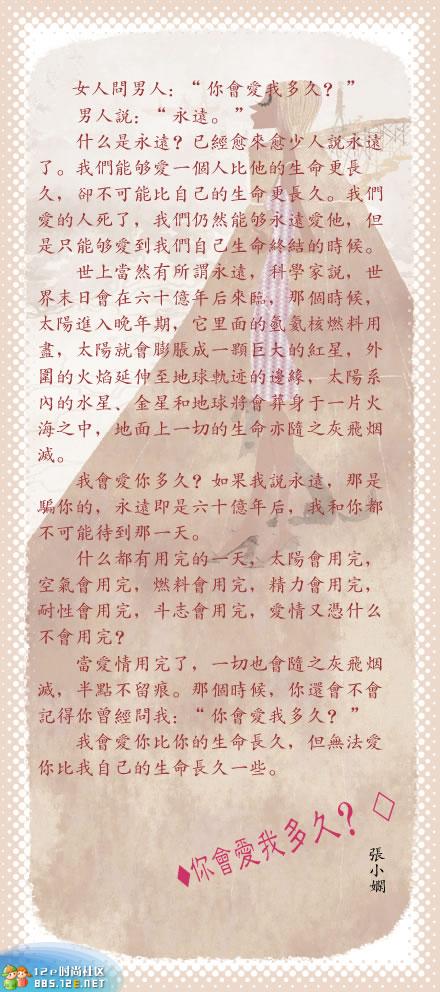 女人問男人：“你會愛我多久？”
男人説：“永遠。”
什么是永遠？已經愈來愈少人説永遠
了。我們能够愛一個人比他的生命更長
久，卻不可能比自己的生命更長久。我們
愛的人死了，我們仍然能够永遠愛他，但
是只能够愛到我們自己生命終結的時候。
世上當然有所謂永遠，科學家説，世
界末日會在六十億年后來臨，那個時候，
太陽進入晚年期，它里面的氫氦核燃料用
盡，太陽就會膨脹成一顆巨大的紅星，外
圍的火焰延伸至地球軌迹的邊緣，太陽系
内的水星、金星和地球將會葬身于一片火
海之中，地面上一切的生命亦隨之灰飛烟
滅。
我會愛你多久？如果我説永遠，那是
騙你的，永遠即是六十億年后，我和你都
不可能待到那一天。
什么都有用完的一天，太陽會用完，
空氣會用完，燃料會用完，精力會用完，
耐性會用完，斗志會用完，愛情又憑什么
不會用完？
當愛情用完了，一切也會隨之灰飛烟
滅，半點不留痕。那個時候，你還會不會
記得你曾經問我：“你會愛我多久？”
我會愛你比你的生命長久，但無法愛
你比我自己的生命長久一些。
♦你會愛我多久？◇
張小嫻
12e时尚社区
BBS.12E.NET